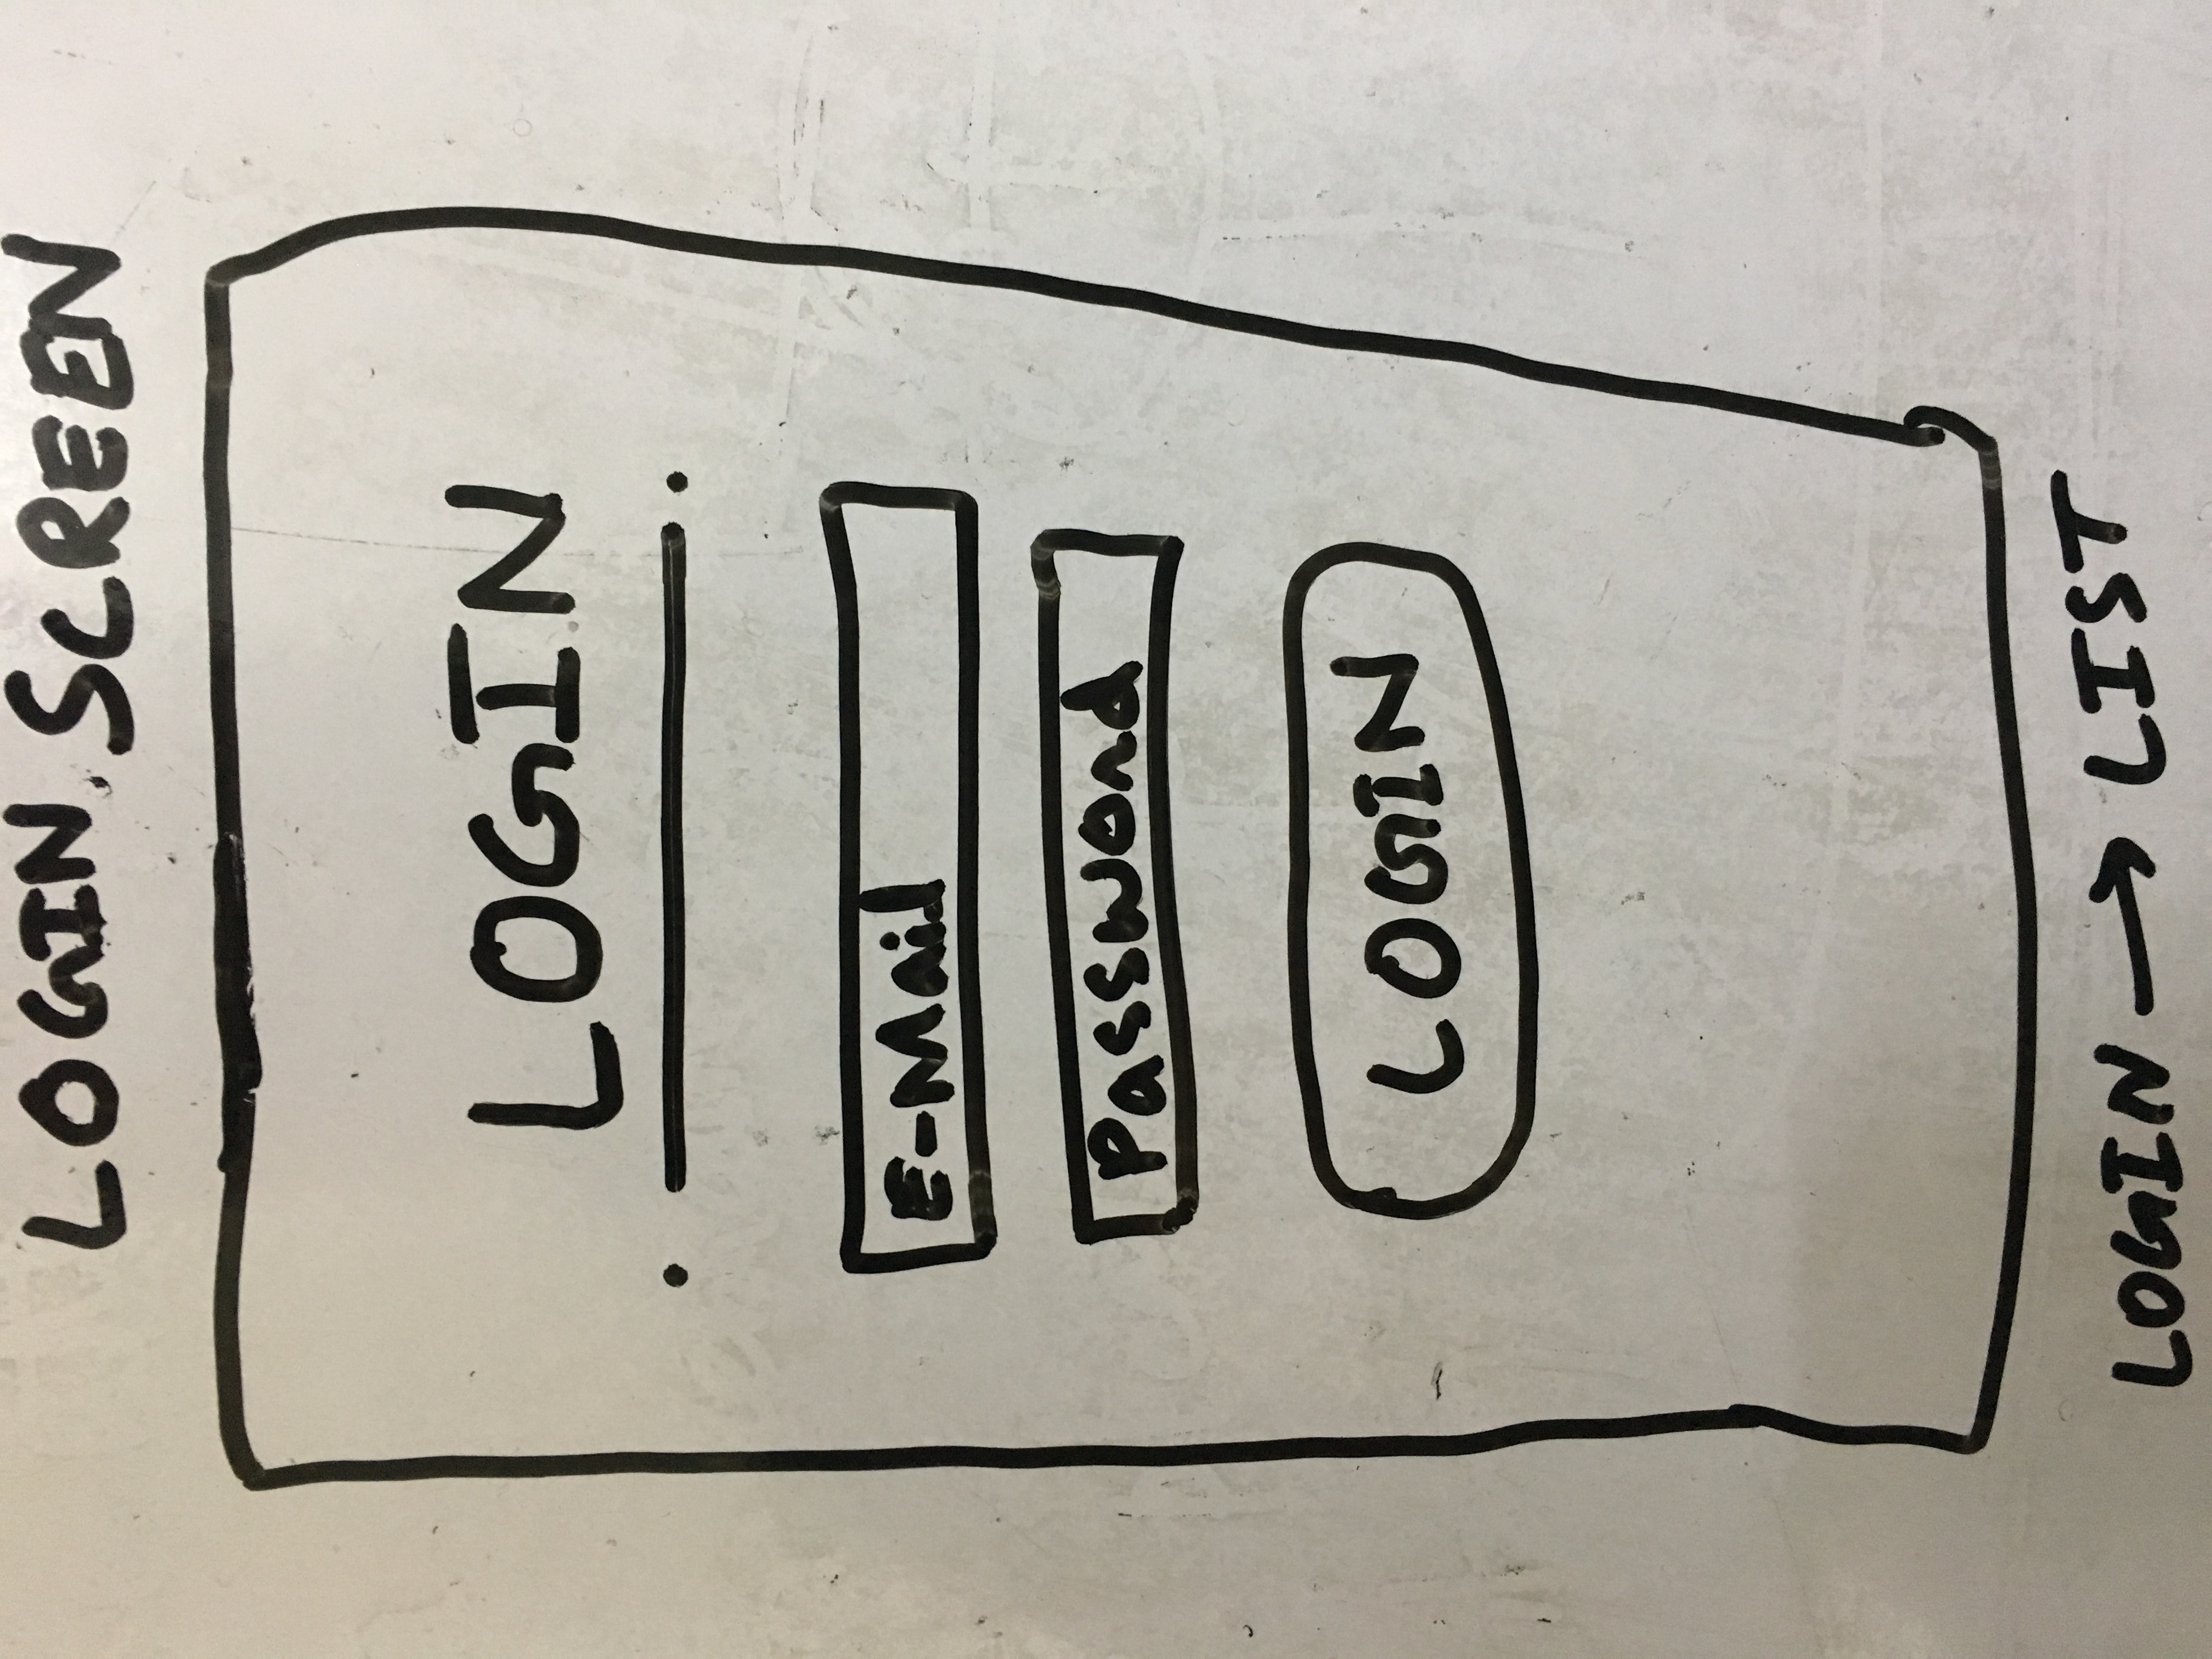 LOGIN SCREEN
LOGIN
E-Mail
Password
LOGIN
LOGIN → LIST